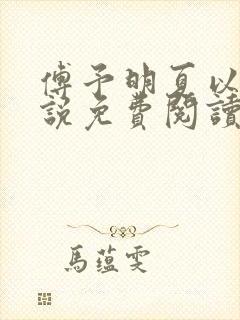 傅予明夏以
說免費閱讀
馬蘊雯